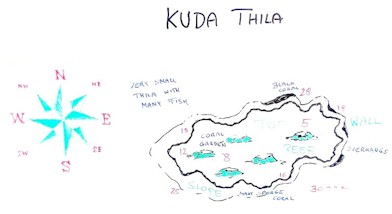 KUDA THILA
N
NW
NE
W
E
SW
SE
S
VERY SMALL
THILA WITH
MANY FISH
BLACK
CORAL
28
TOP 5
REEF
WALL
OVERHANGS
CORAL
GARDEN
12
8
SLOPE
30
CORAL